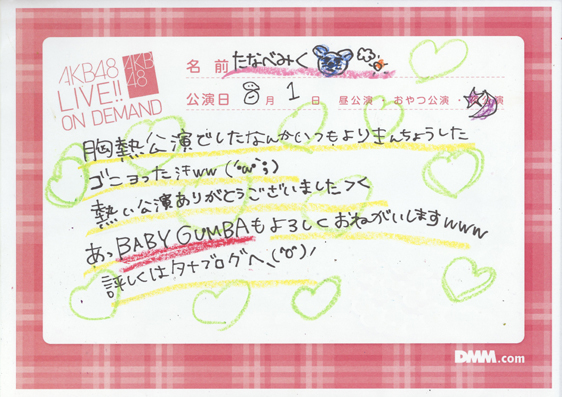 AKB48
LIVE!!
ON DEMAND
AKB
48
名前 たなべみく
公演日 8月1日 昼公演・おやつ公演・夜公演
胸熱公演でしたなんかいつもよりきんちょうした
ゴニョった汗ww (´ω`;)
熱い公演ありがとうございましたつく
あっBABY GUMBAもよろしくおねがいしますwww
詳しくはタナブログへ\(^o^)/
DMM.com